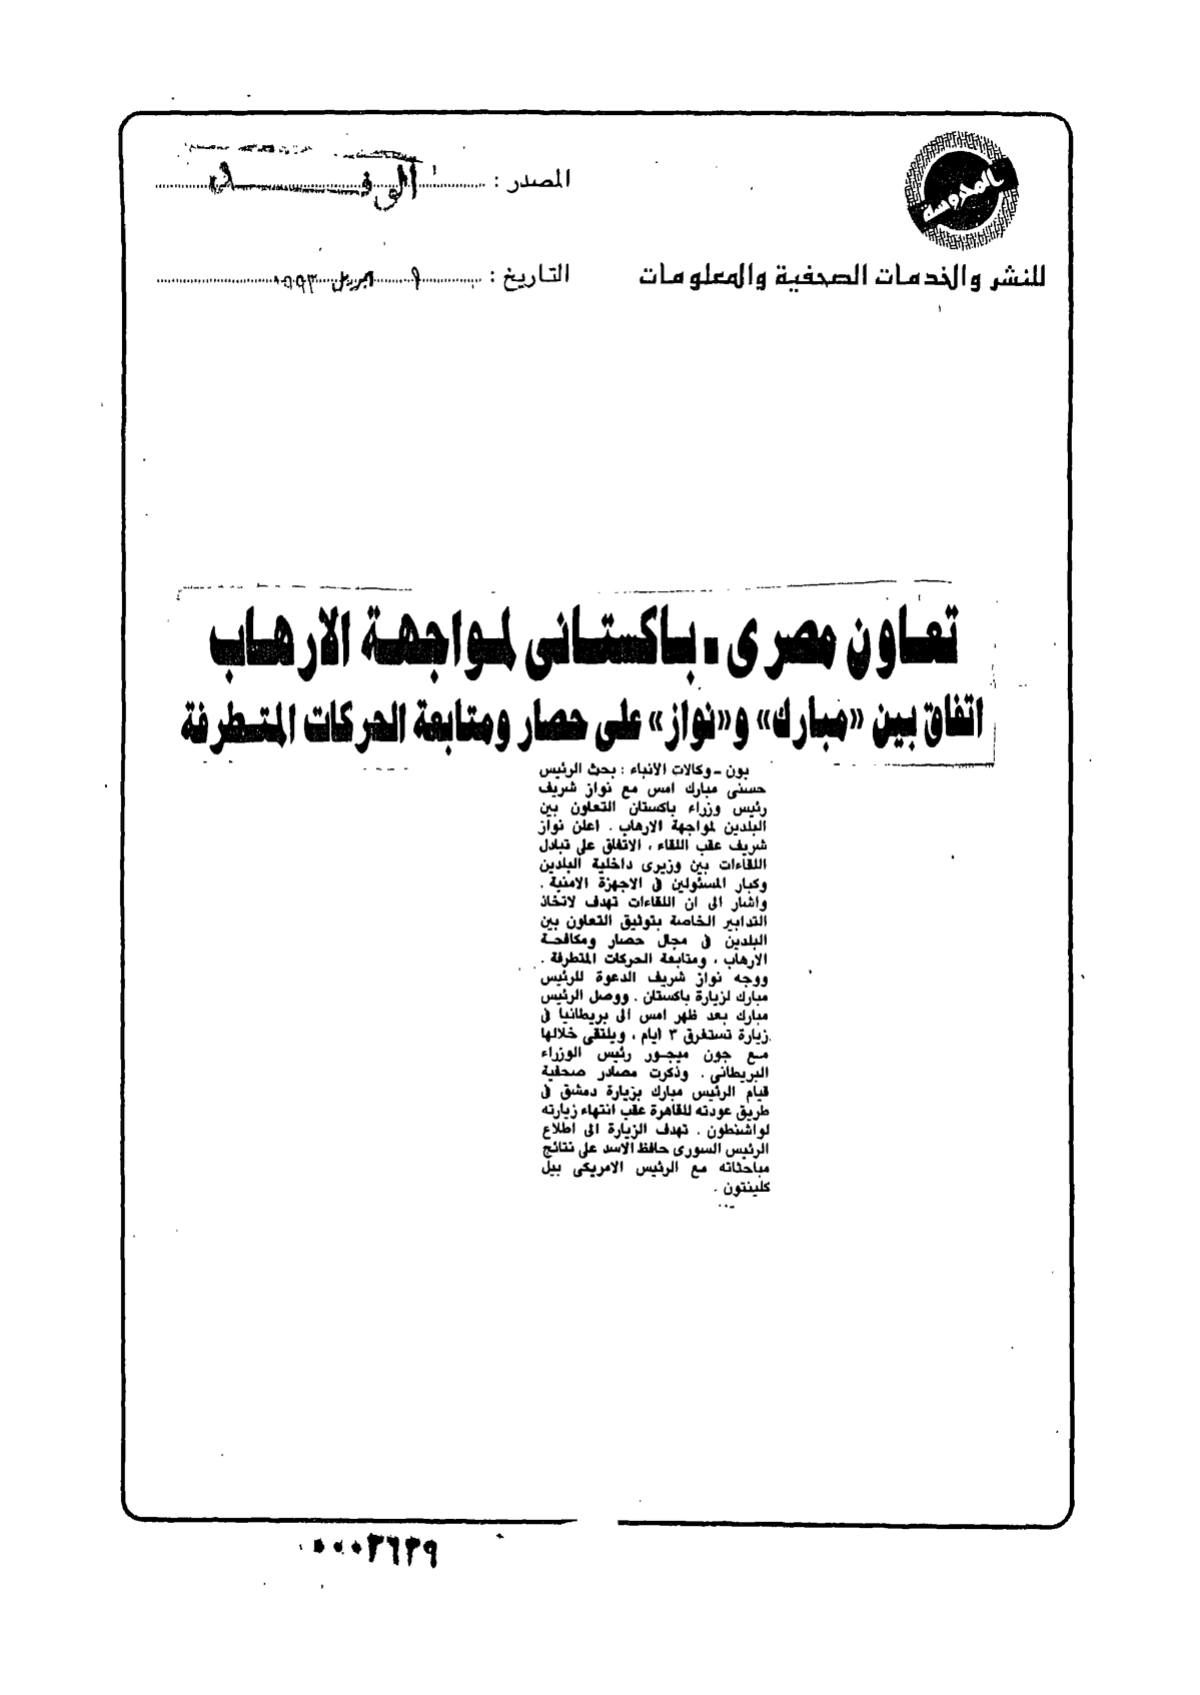 المحروسة
للنشر والخدمات الصحفية والمعلومات
المصدر : الوفد
التاريخ : ٩ ابريل ١٩٩٣
تعاون مصرى - باكستانى لمواجهة الارهاب
اتفاق بين «مبارك» و«نواز» على حصار ومتابعة الحركات المتطرفة
بون - وكالات الأنباء : بحث الرئيس
حسنى مبارك امس مع نواز شريف
رئيس وزراء باكستان التعاون بين
البلدين لمواجهة الارهاب . اعلن نواز
شريف عقب اللقاء ، الاتفاق على تبادل
اللقاءات بين وزيرى داخلية البلدين
وكبار المسئولين فى الاجهزة الامنية .
واشار الى ان اللقاءات تهدف لاتخاذ
التدابير الخاصة بتوثيق التعاون بين
البلدين فى مجال حصار ومكافحة
الارهاب ، ومتابعة الحركات المتطرفة .
ووجه نواز شريف الدعوة للرئيس
مبارك لزيارة باكستان . ووصل الرئيس
مبارك بعد ظهر امس الى بريطانيا فى
زيارة تستغرق ٣ ايام ، ويلتقى خلالها
مع جون ميجور رئيس الوزراء
البريطانى . وذكرت مصادر صحفية
قيام الرئيس مبارك بزيارة دمشق فى
طريق عودته للقاهرة عقب انتهاء زيارته
لواشنطون . تهدف الزيارة الى اطلاع
الرئيس السورى حافظ الاسد على نتائج
مباحثاته مع الرئيس الامريكى بيل
كلينتون .
٠٠٠٣٦٣٩